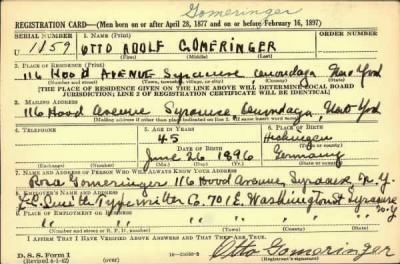 Gomeringer
REGISTRATION CARD—(Men born on or after April 28, 1877 and on or before February 16, 1897)
SERIAL NUMBER 1. NAME (Print) ORDER NUMBER
U 1159 OTTO ADOLF GOMERINGER
(First) (Middle) (Last)
2. PLACE OF RESIDENCE (Print)
116 HOOD AVENUE Syracuse Onondaga New York
(Number and street) (Town) (County) (State)
[THE PLACE OF RESIDENCE GIVEN ON THE LINE ABOVE WILL DETERMINE LOCAL BOARD
JURISDICTION; LINE 2 OF REGISTRATION CERTIFICATE WILL BE IDENTICAL]
3. MAILING ADDRESS
116 Hood Avenue Syracuse Onondaga, New York
[Mailing address if other than place indicated on line 2. If same insert word same]
4. TELEPHONE 5. AGE IN YEARS 6. PLACE OF BIRTH
45 Hechingen
DATE OF BIRTH (Town or county)
June 26 1896 Germany
(Exchange) (Number) (Mo.) (Day) (Yr.) (State or country)
7. NAME AND ADDRESS OF PERSON WHO WILL ALWAYS KNOW YOUR ADDRESS
Rosa Gomeringer 116 Hood Avenue, Syracuse N.Y.
8. EMPLOYER'S NAME AND ADDRESS
L.C. Smith Typewriter Co. 701 E. Washington St Syracuse N.Y.
9. PLACE OF EMPLOYMENT OR BUSINESS
" " " " "
(Number and street or R. F. D. number) (Town) (County) (State)
I AFFIRM THAT I HAVE VERIFIED ABOVE ANSWERS AND THAT THEY ARE TRUE.
D. S. S. Form 1
(Revised 4-1-42) (over) Otto Gomeringer
(Registrant's signature)